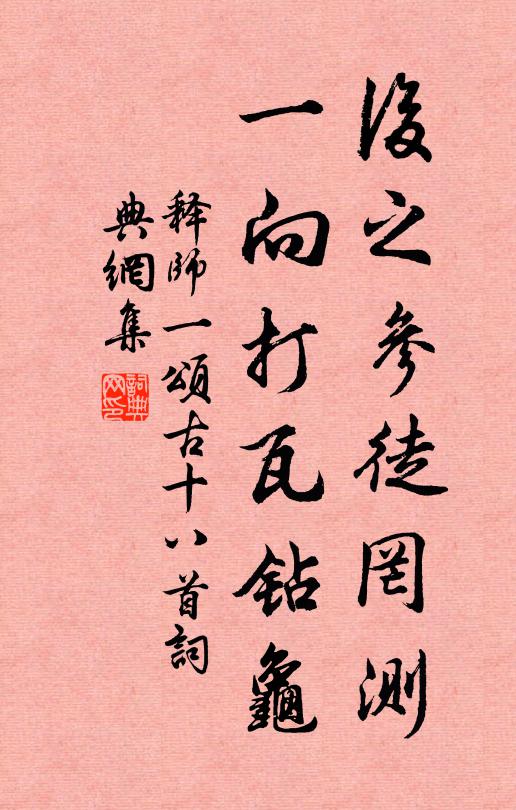 後之參徒罔測
一向打瓦鉆龜
释師一頌古十八首詞
典網集
詞典网印